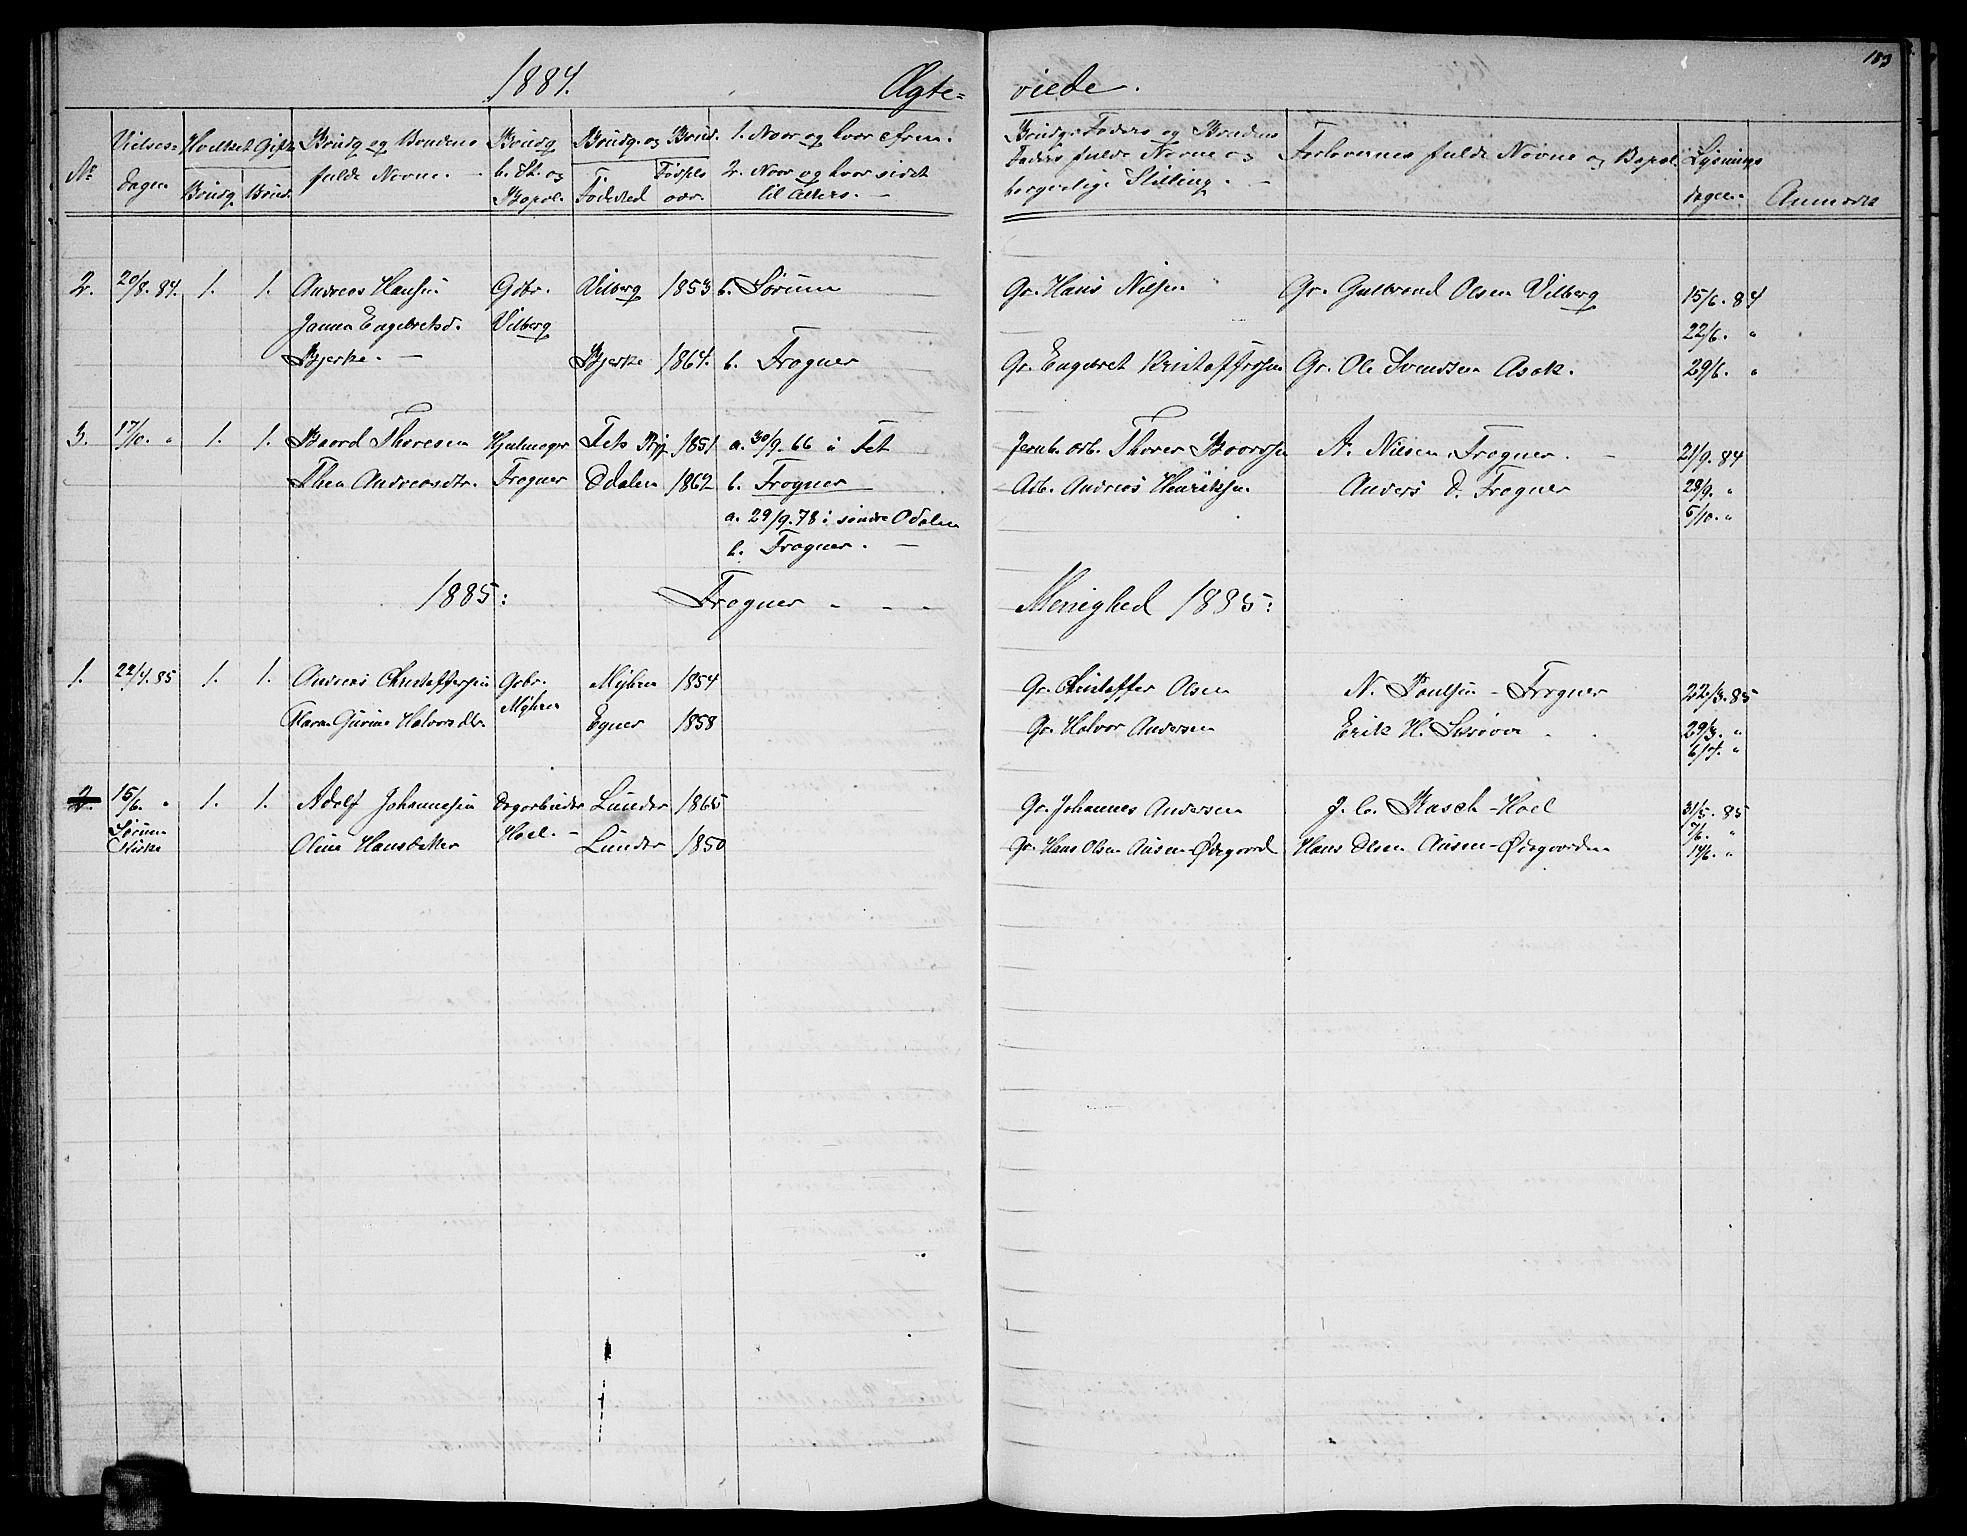 183
1884. Ægte= viede.
No Vielses= dagen Hvilket Gifte Brudg. Brud. Brudg. og Brudens fulde Navne. Brudg. b. St. og Bopæl. Brudg. og Brud. Fødested Fødsels aar. 1. Naar og hvor 2. Naar og hvor sidst til Alters. Brudg. Faders og Brudens Faders fulde Navne og borgerlige Stilling. Forlovernes fulde Navne og Bopæl. Lysnings dagen.
2. 20/8. 84. 1. 1. Andreas Hansen Gbr. Vilberg 1853 b. Sørum Gr. Hans Nilsen Gr. Gulbrand Olsen Vilberg 15/6. 84
Engebretsd. Vilberg 22/6. "
Bjerke. Bjerke 1864. b. Frogner Gr. Engebret Kristoffersen Gr. Ole Svendsen Asak. 29/6. "
3. 17/10. " 1. 1. Baard Thoresen Fets 1851 a. 30/9. 66 i Fet Jernb. arb. Thorer Baardsen A. Nilsen Frogner. 21/9. 84
Thea Andreasdtr. Frogner Odalen 1862 b. Frogner Arb. Andreas Henriksen. Anders D. Frogner 28/9. "
a. 29/9. 78 i søndre Odalen 5/10. "
b. Frogner.
1885: Frogner Menighed 1885:
1. 22/4. 85 1. 1. Andreas Christoffersen Gbr. Myhren 1854 Gr. Christoffer Olsen N. Paulsen - Frogner 22/3. 85
Gurine Halvorsdtr. Myhren Egner 1858 Gr. Halvor Andersen Erik H. 29/3. "
6/4. "
2. 15/6. " 1. 1. Adolf Johannesen Dagarbeider Lunder 1865 Gr. Johannes Andersen J. C. Rasch - Hoel 31/5. 85
Sørum Kirke Oline Hansdatter Hoel. Lunder 1850 Gr. Hans Olsen Ausen-Ødegaard Hans Olsen Ausen-Ødegaarden 7/6. "
14/6. "